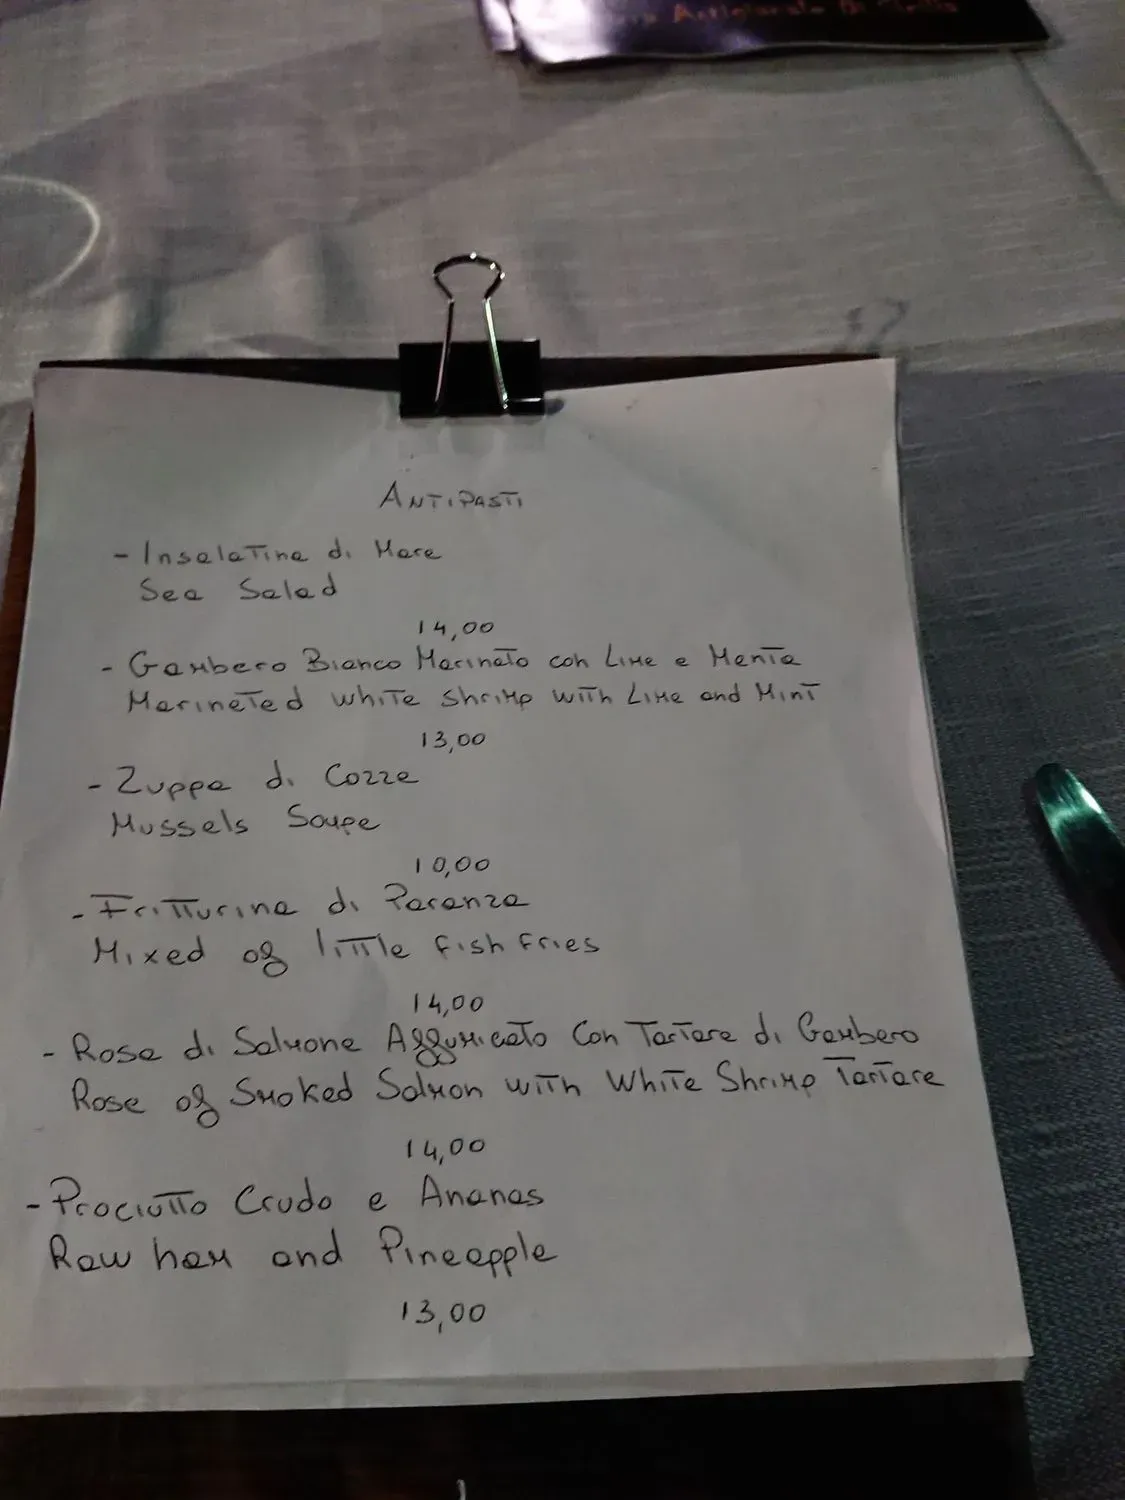 Artigianale Di Sicilia
ANTIPASTI
- Insalatina di Mare
Sea Salad
14,00
- Gambero Bianco Marinato con Lime e Menta
Marineted white shrimp with Lime and Mint
13,00
- Zuppa di Cozze
Mussels Soupe
10,00
- Fritturina di Paranza
Mixed of little fish fries
14,00
- Rosa di Salmone Affumicato Con Tartare di Gambero
Rose of Smoked Salmon with White Shrimp Tartare
14,00
- Prociutto Crudo e Ananas
Raw ham and Pineapple
13,00